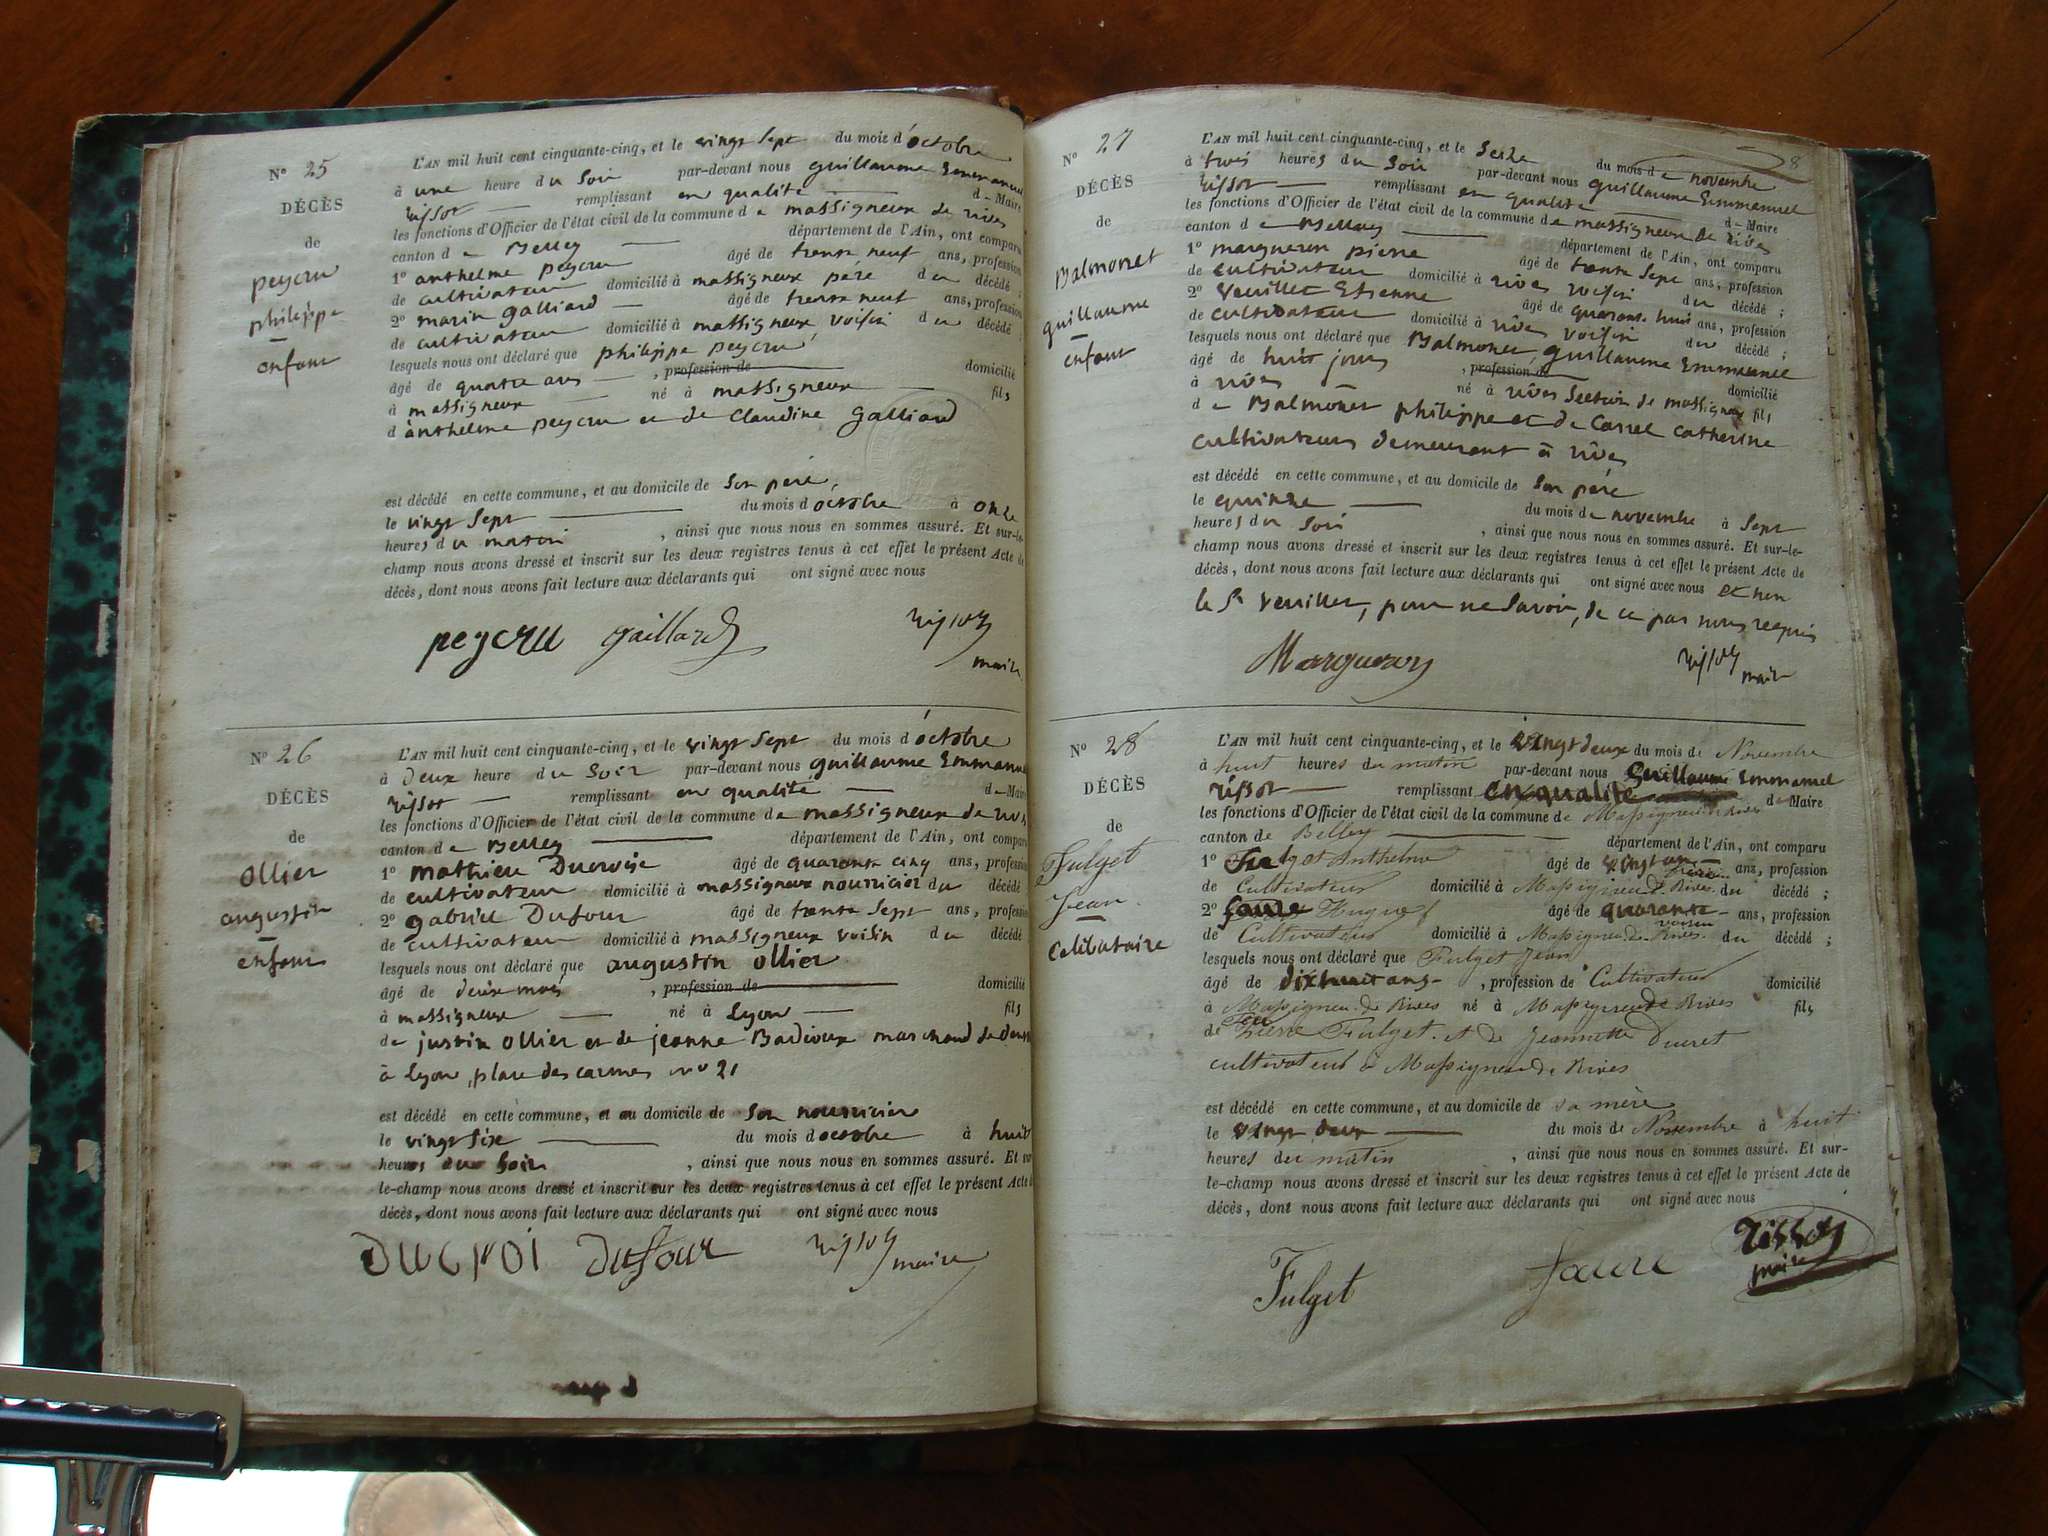 N° 25
DÉCÈS
de
peycru
philippe
enfant
L'AN mil huit cent cinquante-cinq, et le vingt sept du mois d'octobre
à une heure du Soir par-devant nous guillaume Emmanuel
rissot remplissant en qualité de Maire
les fonctions d'Officier de l'état civil de la commune de massigneux de rives
canton de Belley département de l'Ain, ont comparu
1° anthelme peycru âgé de trente neuf ans, profession
de cultivateur domicilié à massigneux père du décédé ;
2° marin galliard âgé de trente neuf ans, profession
de cultivateur domicilié à massigneux voisin du décédé ;
lesquels nous ont déclaré que philippe peycru
âgé de quatre ans , profession de domicilié
à massigneux né à massigneux fils
d'anthelme peycru et de Claudine galliard
est décédé en cette commune, et au domicile de Son père,
le vingt Sept du mois d'octobre à onze
heures du matin , ainsi que nous nous en sommes assuré. Et sur-le-
champ nous avons dressé et inscrit sur les deux registres tenus à cet effet le présent Acte de
décès, dont nous avons fait lecture aux déclarants qui ont signé avec nous
peycru gaillard rissot
maire
N° 26
DÉCÈS
de
Ollier
augustin
enfant
L'AN mil huit cent cinquante-cinq, et le vingt Sept du mois d'octobre
à Deux heure du Soir par-devant nous guillaume Emmanuel
rissot remplissant en qualité de Maire
les fonctions d'Officier de l'état civil de la commune de massigneux de rives
canton de Belley département de l'Ain, ont comparu
1° mathieu Ducroise âgé de quarante cinq ans, profession
de cultivateur domicilié à massigneux nourricier du décédé
2° gabriel Dufour âgé de trente Sept ans, profession
de cultivateur domicilié à massigneux voisin du décédé
lesquels nous ont déclaré que augustin Ollier
âgé de deux mois , profession de domicilié
à massigneux né à Lyon fils
de justin Ollier et de jeanne Badioux marchand
à Lyon, place des carmes n° 21
est décédé en cette commune, et au domicile de Son nourricier
le vingt Six du mois d'octobre à huit
heures du Soir , ainsi que nous nous en sommes assuré. Et sur-
le-champ nous avons dressé et inscrit sur les deux registres tenus à cet effet le présent Acte de
décès, dont nous avons fait lecture aux déclarants qui ont signé avec nous
Ducroi Dufour rissot maire
28
N° 27
DÉCÈS
de
Balmonet
guillaume
enfant
L'AN mil huit cent cinquante-cinq, et le Seize du mois de novembre
à trois heures du Soir par-devant nous guillaume Emmanuel
rissot remplissant en qualité de Maire
les fonctions d'Officier de l'état civil de la commune de massigneux de rives
canton de Belley département de l'Ain, ont comparu
1° margueron pierre âgé de trente Sept ans, profession
de cultivateur domicilié à rives voisin du décédé ;
2° Veuillet Etienne âgé de quarante huit ans, profession
de cultivateur domicilié à rives voisin du décédé ;
lesquels nous ont déclaré que Balmonet, guillaume Emmanuel
âgé de huit jours , profession de domicilié
à rives né à rives Section de massigneux fils
de Balmonet philippe et de Carrel Catherine
cultivateurs demeurant à rives
est décédé en cette commune, et au domicile de Son père
le quinze du mois de novembre à Sept
heures du Soir , ainsi que nous nous en sommes assuré. Et sur-le-
champ nous avons dressé et inscrit sur les deux registres tenus à cet effet le présent Acte de
décès, dont nous avons fait lecture aux déclarants qui ont signé avec nous et non
le Sr Veuillet, pour ne Savoir, de ce par nous requis
Margueron rissot
maire
N° 28
DÉCÈS
de
Fulget
Jean
Celibataire
L'AN mil huit cent cinquante-cinq, et le vingt deux du mois de Novembre
à huit heures du matin par-devant nous Guillaume Emmanuel
rissot remplissant en qualité de Maire
les fonctions d'Officier de l'état civil de la commune de Massigneu de Rives
canton de Belley département de l'Ain, ont comparu
1° Fulget Anthelme âgé de vingt un ans, profession
de Cultivateur domicilié à Massigneu de Rives frère du décédé ;
2° Faure Hugues âgé de quarante ans, profession
de Cultivateur domicilié à Massigneu de Rives voisin du décédé ;
lesquels nous ont déclaré que Fulget Jean
âgé de dix huit ans , profession de Cultivateur domicilié
à Massigneu de Rives né à Massigneu de Rives fils
de feu Pierre Fulget et de Jeannette Ducret
cultivateur à Massigneu de Rives
est décédé en cette commune, et au domicile de sa mère
le vingt deux du mois de Novembre à huit
heures du matin , ainsi que nous nous en sommes assuré. Et sur-
le-champ nous avons dressé et inscrit sur les deux registres tenus à cet effet le présent Acte de
décès, dont nous avons fait lecture aux déclarants qui ont signé avec nous
Fulget faure rissot
maire